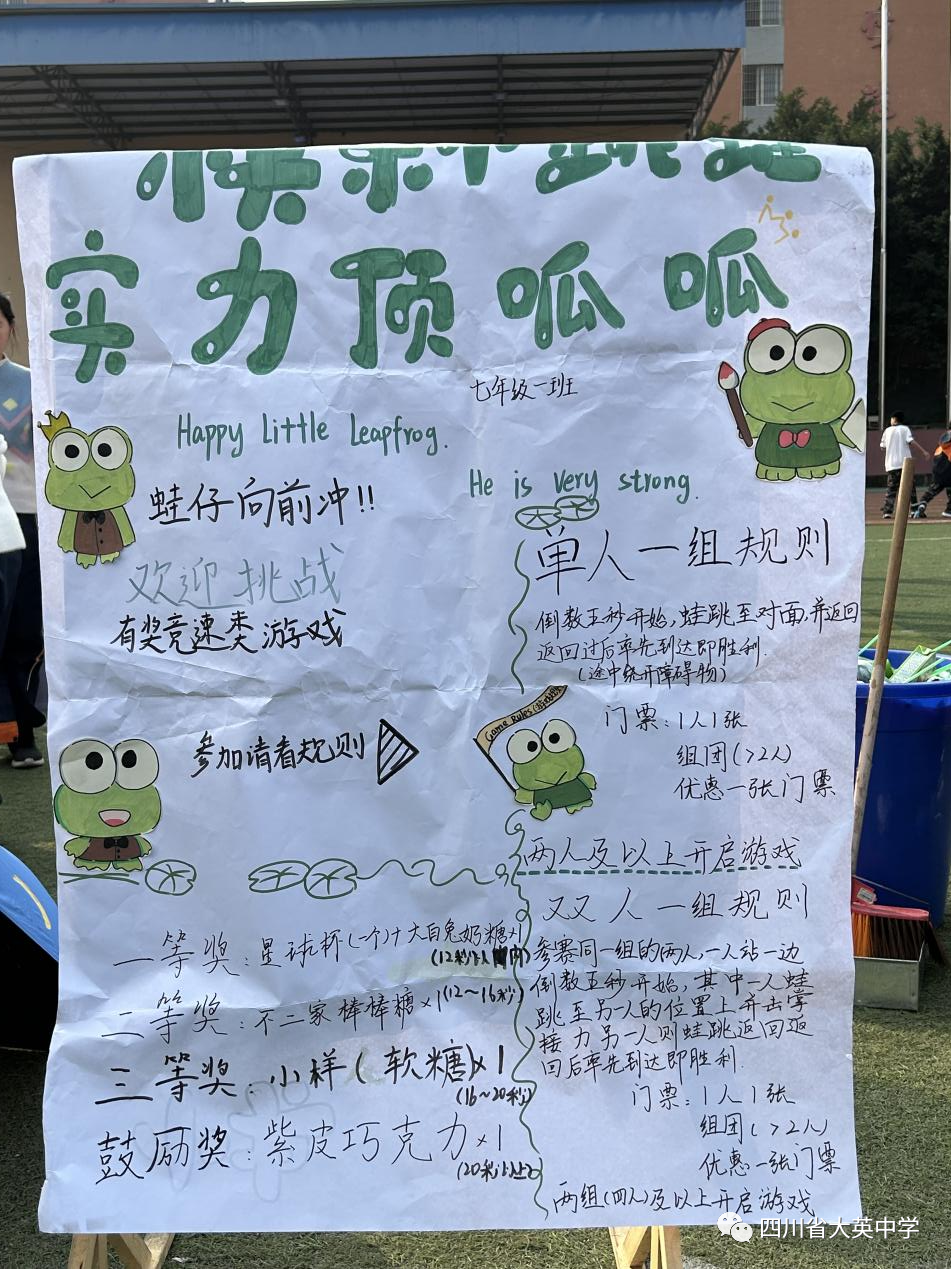 实力顶呱呱
七年级一班
Happy Little Leapfrog.
He is very strong.
蛙仔向前冲!!
欢迎挑战
有奖竞速类游戏
参加请看规则
一等奖：星球杯(一个)+大白兔奶糖×1
(12秒以内)
二等奖：不二家棒棒糖×1(12～16秒)
三等奖：小样(软糖)×1
(16～20秒)
鼓励奖：紫皮巧克力×1
(20秒以上)
单人一组规则
倒数五秒开始,蛙跳至对面,并返回
返回过后率先到达即胜利.
(途中绕开障碍物)
Game Rules
门票：1人1张
组团(>2人)
优惠一张门票
两人及以上开启游戏
双人一组规则
参赛同一组的两人,一人站一边
倒数五秒开始,其中一人蛙
跳至另一人的位置上并击掌
接力另一人则蛙跳返回返
回后率先到达即胜利.
门票：1人1张
组团(>2人)
优惠一张门票
两组(四人)及以上开启游戏
四川省大英中学